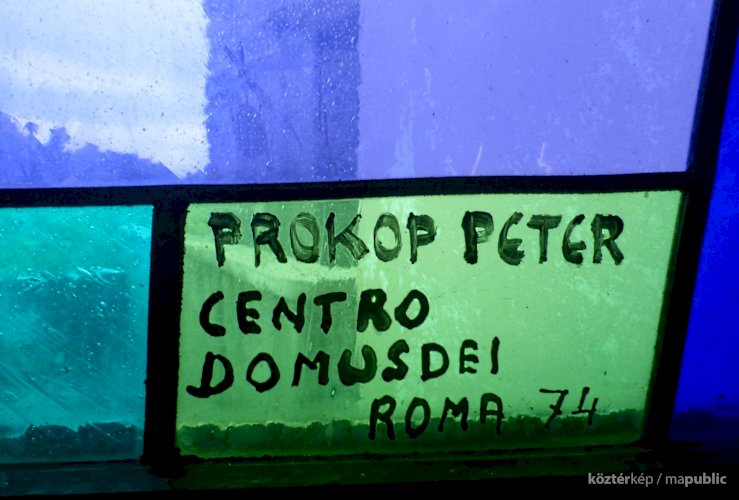 PROKOP PETER
CENTRO
DOMUSDEI
ROMA 74
köztérkép / mapublic